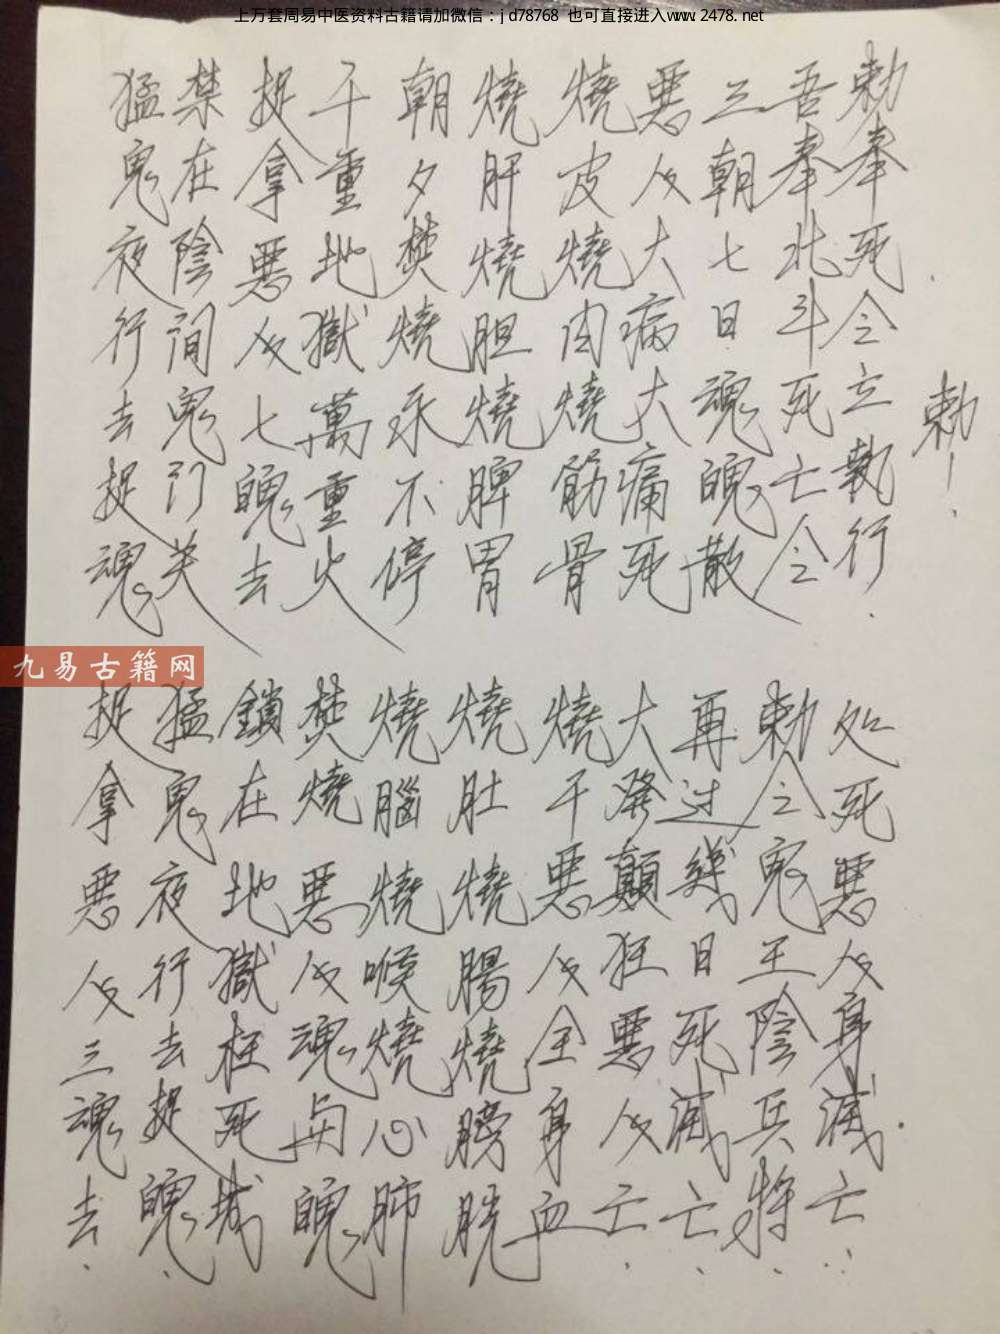 上万套周易中医资料古籍请加微信：jd78768 也可直接进入www.2478.net
猛鬼夜行去捉魂
捉拿惡人三魂去.
禁在陰间鬼门关
猛鬼夜行去捉魄.
捉拿惡人七魄去
鎖在地獄枉死城
千重地獄萬重火
焚燒惡人魂与魄
朝夕焚燒永不停
燒腦燒喉燒心肺
燒肝燒胆燒脾胃
燒肚燒腸燒膀胱
燒皮燒肉燒筋骨
燒干惡人全身血
惡人大病大痛死
大發顛狂惡人亡.
三朝七日魂魄散
再过幾日死滅亡.
吾奉北斗死亡令
勅令鬼王陰兵將.
勅奉死令立執行.
处死惡人身滅亡..
勅!
九易古籍网